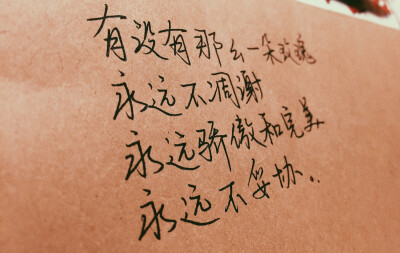 有没有那么一朵玫瑰
永远不凋谢
永远骄傲和完美
永远不妥协..